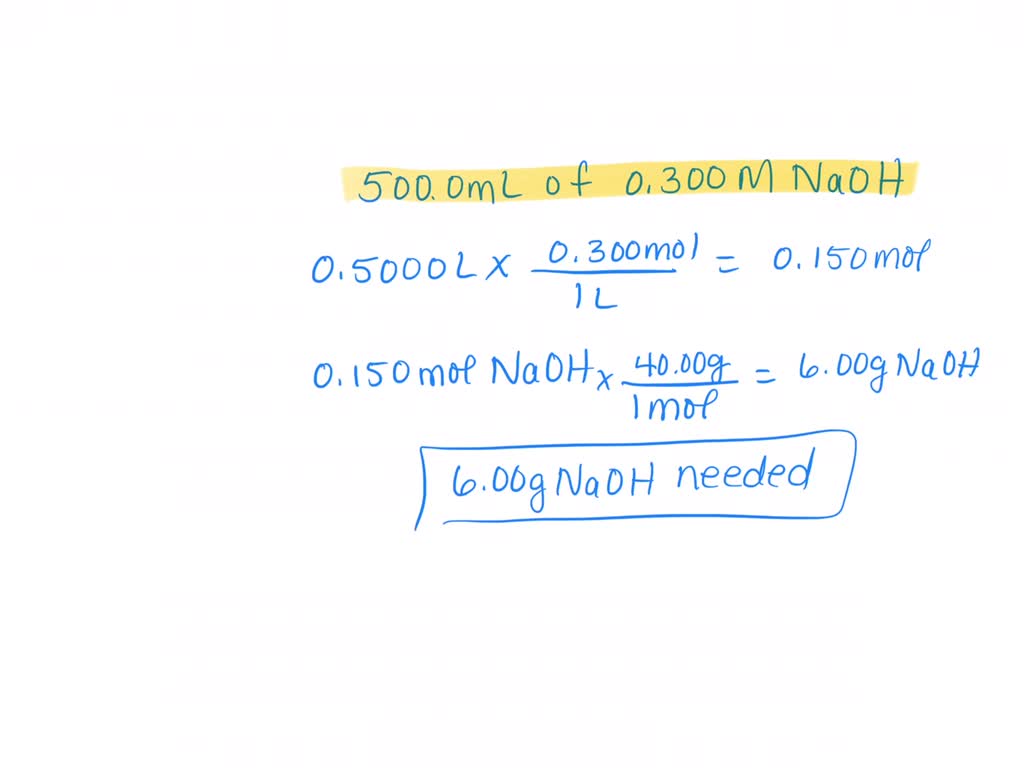 500.0mL of 0.300 M NaOH
0.5000L x 0.300mol / 1L = 0.150mol
0.150mol NaOH x 40.00g / 1mol = 6.00g NaOH
6.00g NaOH needed